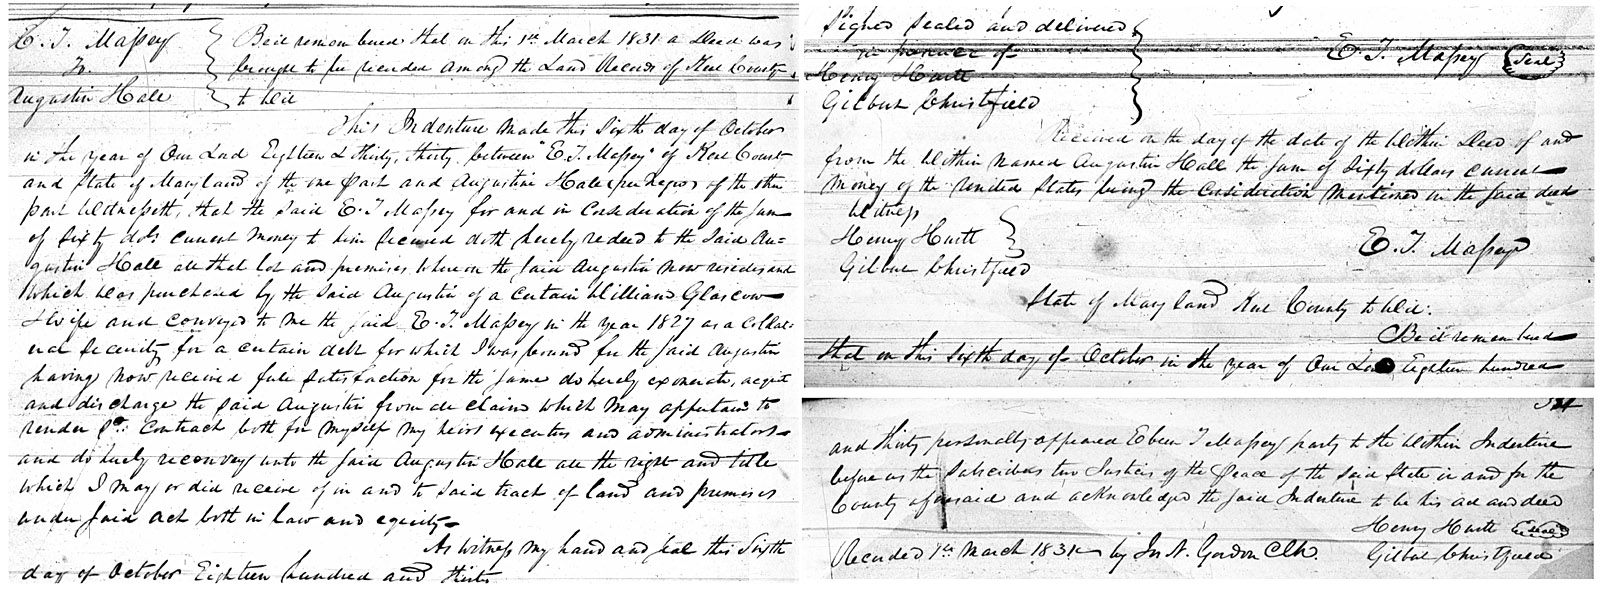 E. T. Massey
To.
Augustin Hale
Be it remembered that on this 1st March 1831 a Deed was
brought to be recorded among the Land Records of Kent County
to wit
This Indenture made this Sixth day of October
in the year of Our Lord Eighteen & thirty, thirty between "E. T. Massey" of Kent County
and State of Maryland of the one Part and Augustin Hale free negro of the other
part Witnesseth, that the said E. T. Massey for and in Consideration of the sum
of Sixty dols current money to him secured doth hereby redeed to the said Au=
gustin Hale all that lot and premises whereon the said Augustin now resides and
which was purchased by the said Augustin of a certain William Glascow
& wife and conveyed to me the said E. T. Massey in the year 1827 as a collat=
eral Security for a certain debt for which I was bound for the said Augustin
having now received full satisfaction for the same do hereby exonerate, acquit
and discharge the said Augustin from all claim which may appertain to
render Contract both for myself my heirs executors and administrators
and do hereby reconvey unto the said Augustin Hale all the right and title
which I may or did receive of in and to said tract of land and premises
under said act both in law and equity
As witness my hand and seal this Sixth
day of October Eighteen hundred and thirty
Signed Sealed and delivered
in presence of
Henry Hurtt
Gilbert Christfield
E. T. Massey Seal
Received on the day of the date of the within Deed of and
from the within named Augustin Hall the sum of Sixty dollars current
money of the United States being the Consideration mentioned in the said deed
Witness
Henry Hurtt
Gilbert Christfield
E. T. Massey
State of Maryland Kent County to wit:
Be it remembered
that on this Sixth day of October in the year of Our Lord Eighteen hundred
and thirty personally appeared Eben T Massey party to the within Indenture
before us the Subscribers two Justices of the Peace of the said State in and for the
County aforesaid and acknowledged the said Indenture to be his act and deed
Henry Hurtt
Gilbert Christfield
Recorded 1st March 1831 by Jn. N. Gordon Clk